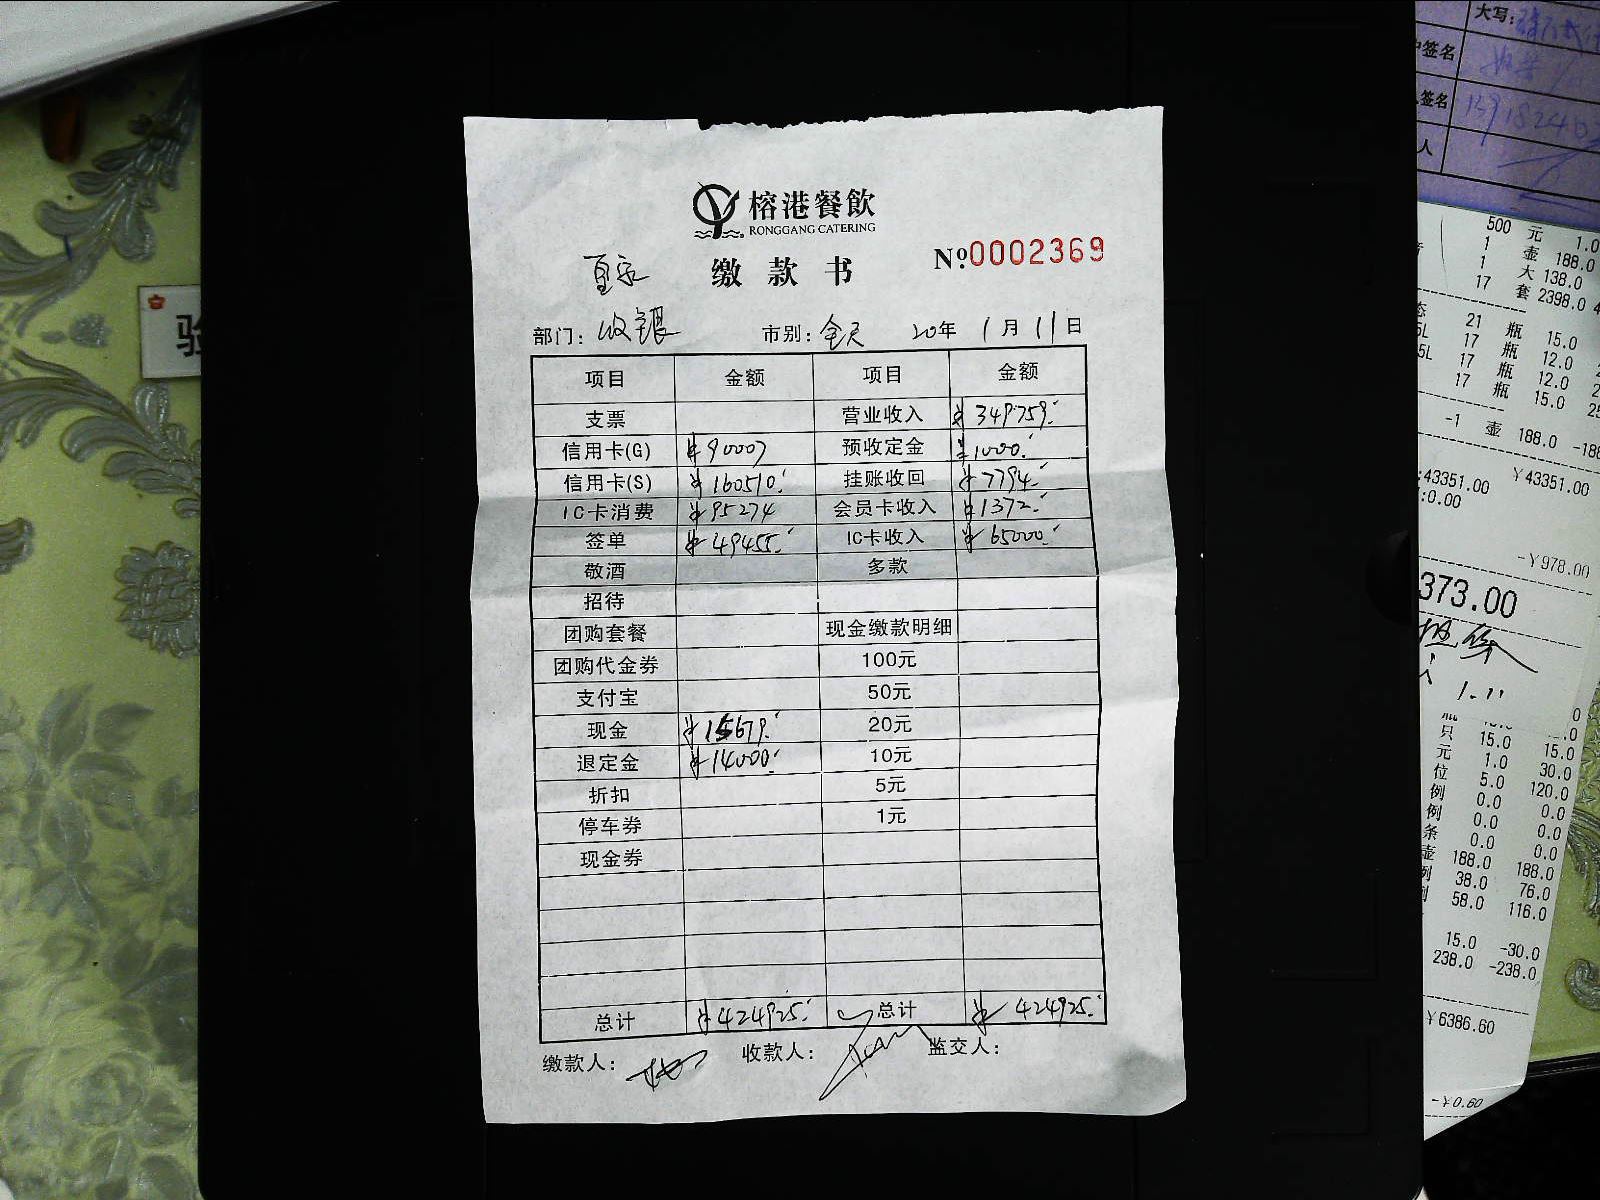 榕港餐飲
RONGGANG CATERING
缴款书 №0002369
部门: 收银 市别: 全天 20年 1月 11日
项目 金额 项目 金额
支票 营业收入 ¥349759.
信用卡(G) ¥90007 预收定金 ¥1000.
信用卡(S) ¥160510. 挂账收回 ¥7794.
IC卡消费 ¥95274 会员卡收入 ¥1372.
签单 ¥49455. IC卡收入 ¥65000.
敬酒 多款
招待
团购套餐 现金缴款明细
团购代金券 100元
支付宝 50元
现金 ¥15679. 20元
退定金 ¥14000. 10元
折扣 5元
停车券 1元
现金券
总计 ¥424925. 总计 ¥424925.
缴款人: 收款人: 监交人:
验
大写:
签名
签名
人
500 元 1.0
1 壶 188.0
1 大 138.0
17 套 2398.0
21 瓶 15.0
5L 17 瓶 12.0
5L 17 瓶 12.0
17 瓶 15.0
-1 壶 188.0
:43351.00 ¥43351.00
:0.00
-¥978.00
373.00
1.11
只 15.0 15.0
元 1.0 30.0
位 5.0 120.0
例 0.0 0.0
例 0.0 0.0
条 0.0 0.0
壶 188.0 188.0
例 38.0 76.0
例 58.0 116.0
15.0 -30.0
238.0 -238.0
¥6386.60
-¥0.60